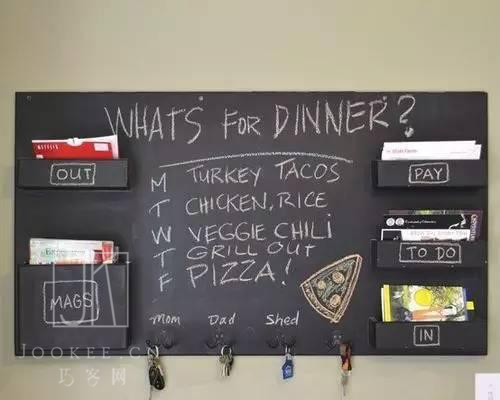 WHATS FOR DINNER?
OUT
PAY
M TURKEY TACOS
T CHICKEN, RICE
W VEGGIE CHILI
T GRILL OUT
F PIZZA!
TO DO
MAGS
IN
Mom Dad Shed
JOOKEE.CN
巧客网